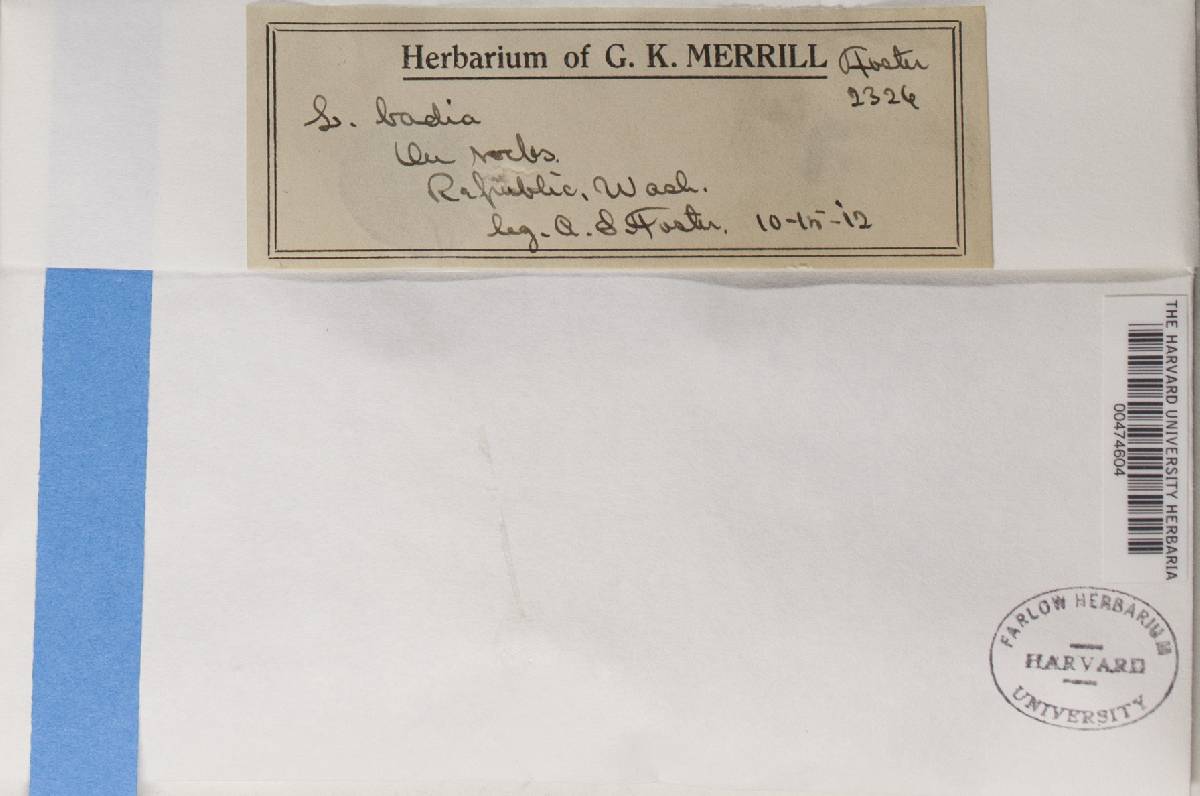 Herbarium of G. K. MERRILL
Foster
2326
L. badia
On rocks.
Republic, Wash.
leg. A. S. Foster. 10-15-'12
THE HARVARD UNIVERSITY HERBARIA
00474604
FARLOW HERBARIUM
HARVARD
UNIVERSITY